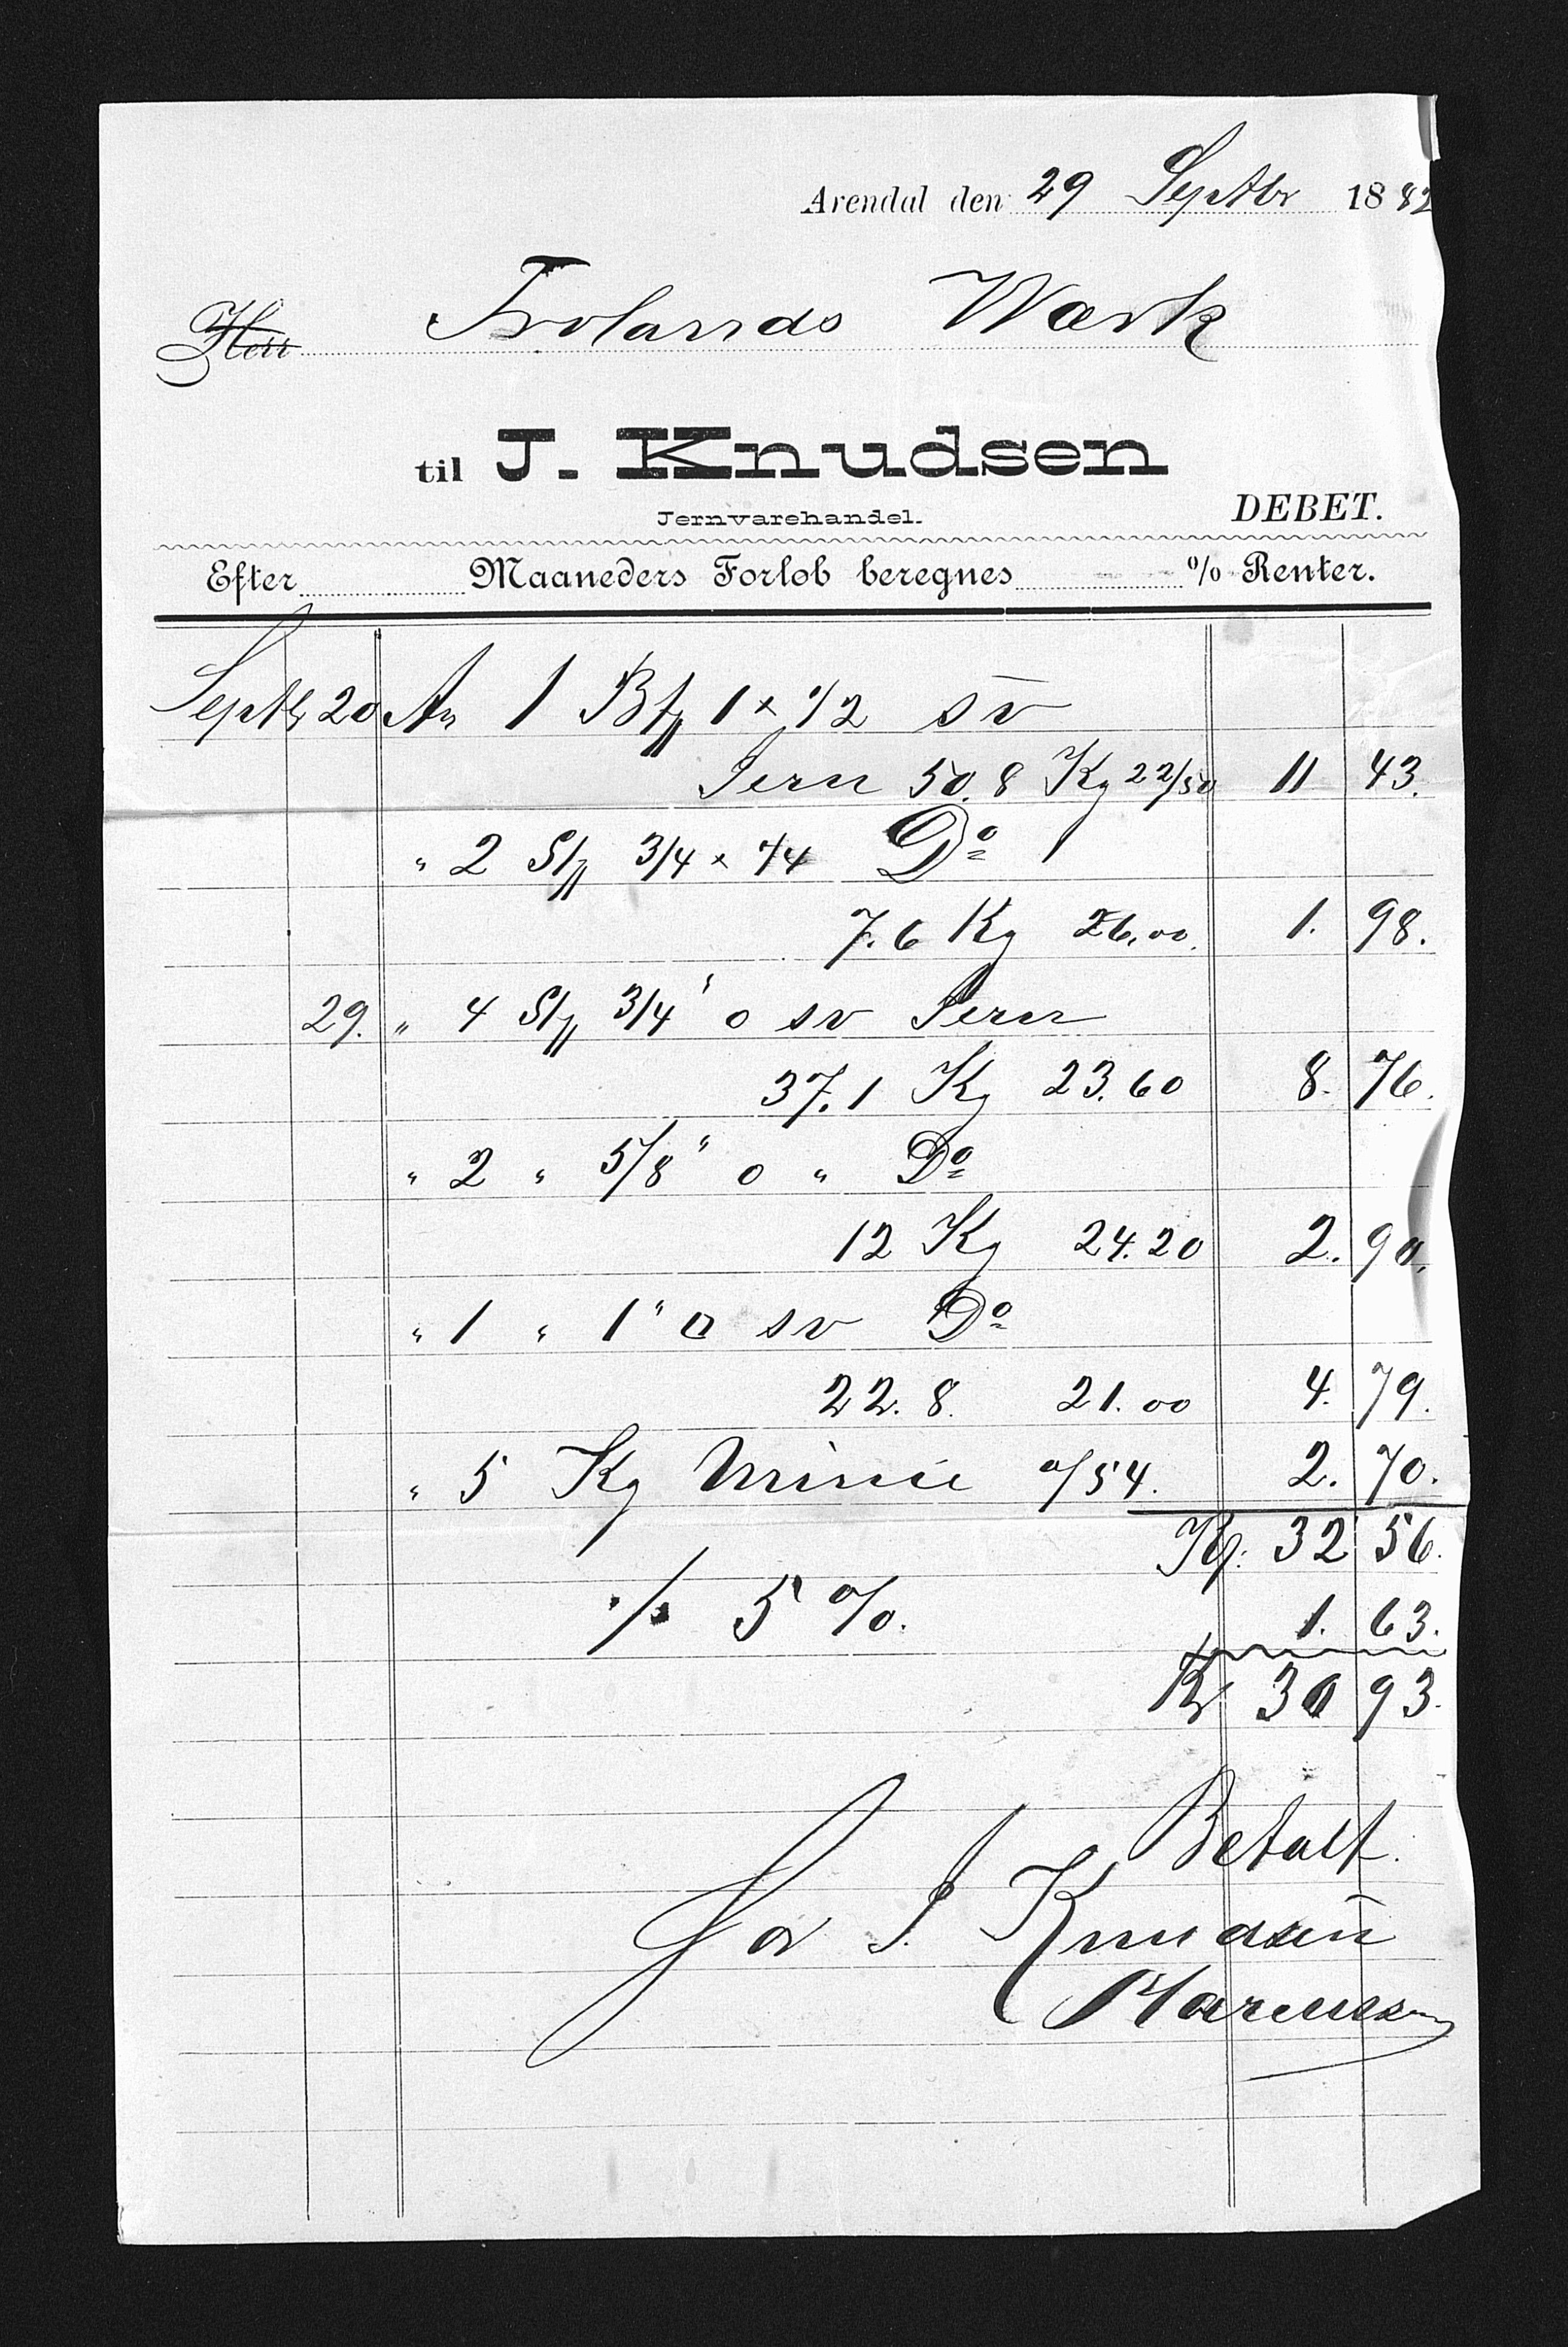 Arendal den 29 Septbr 1882
Herr Frolands Værk
til J. Knudsen
Jernvarehandel.
DEBET.
Efter Maaneders Forløb beregnes % Renter.
Septb 20 An 1 Bt 1 x 1/2 sv
Jern 50.8 Kg 22/50 11 43.
" 2 St 3/4 x 1/4 Do
7.6 Kg 26.00. 1. 98.
29. " 4 St 3/4" o sv Jern
37.1 Kg 23.60 8. 76.
" 2 " 5/8" o " Do
12 Kg 24.20 2. 90.
" 1 " 1" □ sv Do
22.8. 21.00 4. 79.
" 5 Kg Minie a/54. 2. 70.
Kr. 32 56.
./. 5 %. 1. 63.
Kr 30 93.
Betalt.
For J. Knudsen